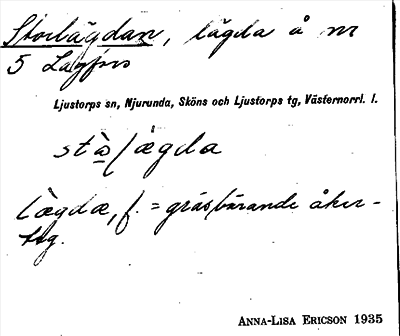 Storlägdan, lägda å nr
5 Lagfors
Ljustorps sn, Njurunda, Sköns och Ljustorps tg, Västernorrl. l.
lægdæ, f. = gräsbärande åker-
teg.
ANNA-LISA ERICSON 1935